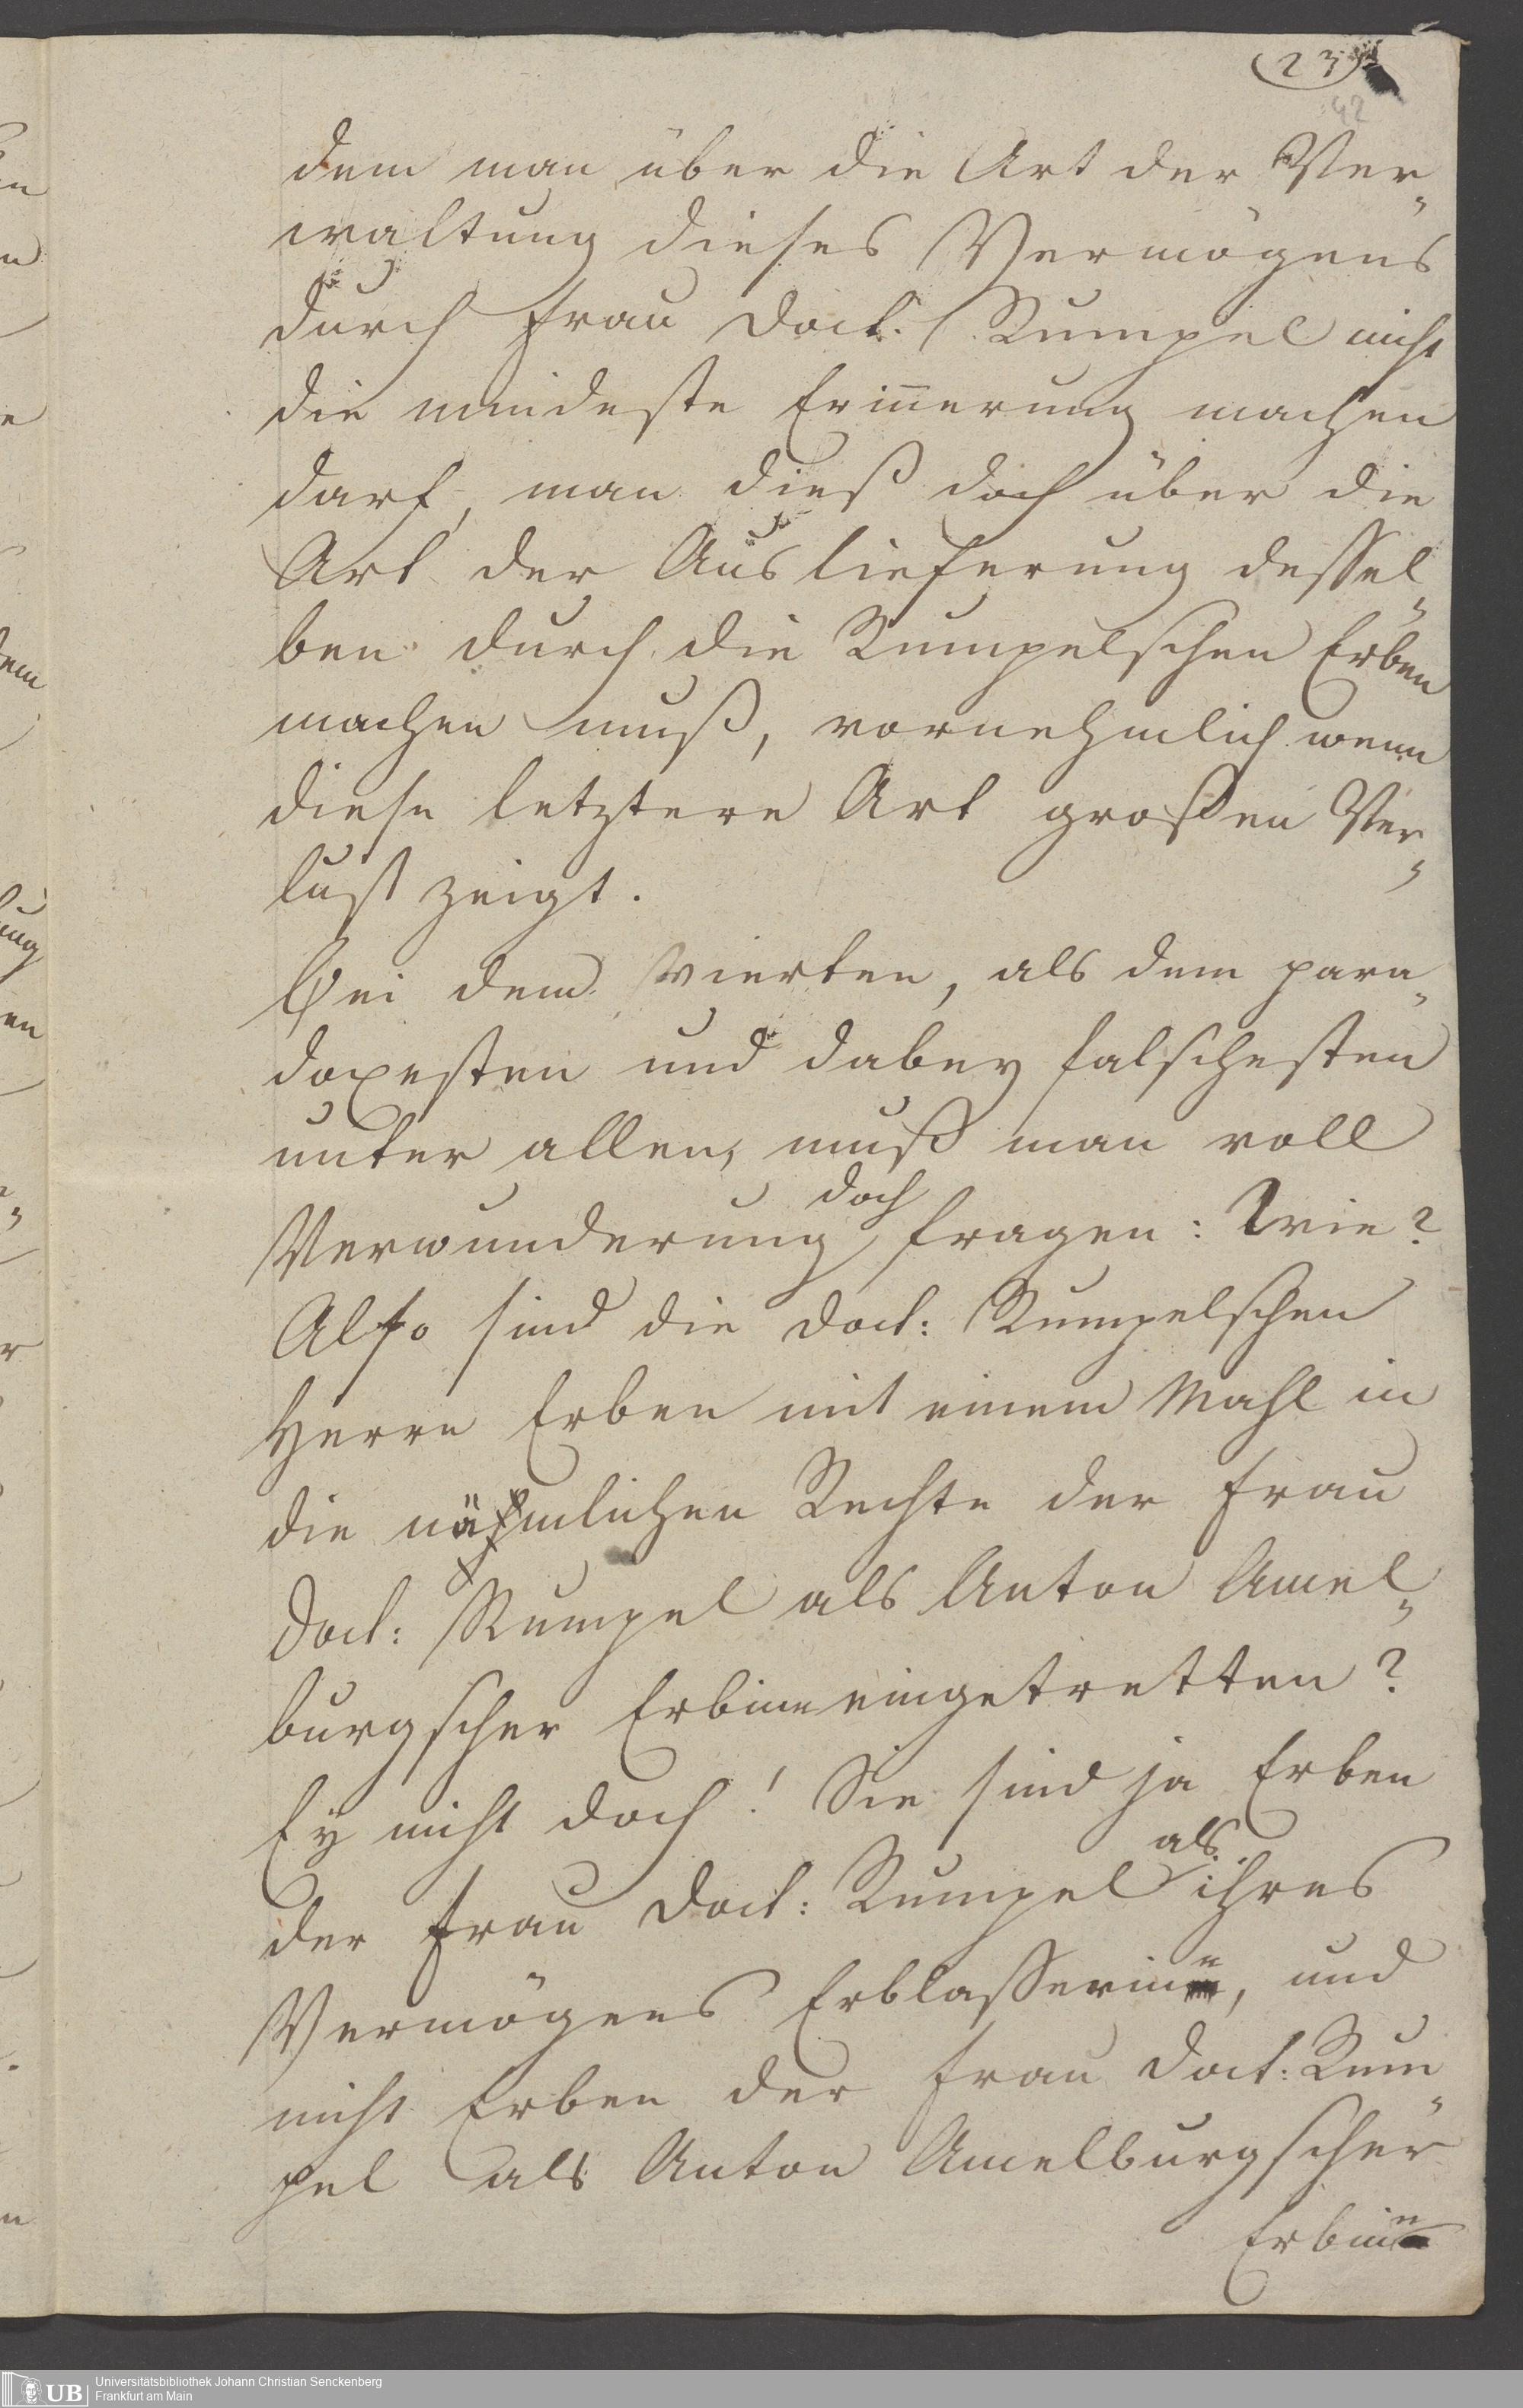 (23)
42
dem man über die Art der Ver„
waltung dieses Vermögens
durch Frau Doct. Rumpel nicht
die mindeste Erinnerung machen
darf, man dieß doch über die
Art der Auslieferung dessel„
ben durch die Rumpelschen Erben
machen muß, vornehmlich wenn
diese letztere Art großen Ver„
lust zeigt.
Bei dem Vierten, als dem para„
doxesten und dabey falschesten
unter allen, muß man voll
Verwunderung doch fragen: Wie?
Also sind die Doct: Rumpelschen
Herrn Erben mit einem Mahl in
die nähmlichen Rechte der Frau
Doct: Rumpel als Anton Amel„
burgscher Erbinn eingetretten?
Ey nicht doch! Sie sind ja Erben
der Frau Doct: Rumpel als ihres
Vermögens Erblasserinn, und
nicht Erben der Frau Doct: Rum„
pel als Anton Amelburgscher
Erbinn
UB
Universitätsbibliothek Johann Christian Senckenberg
Frankfurt am Main